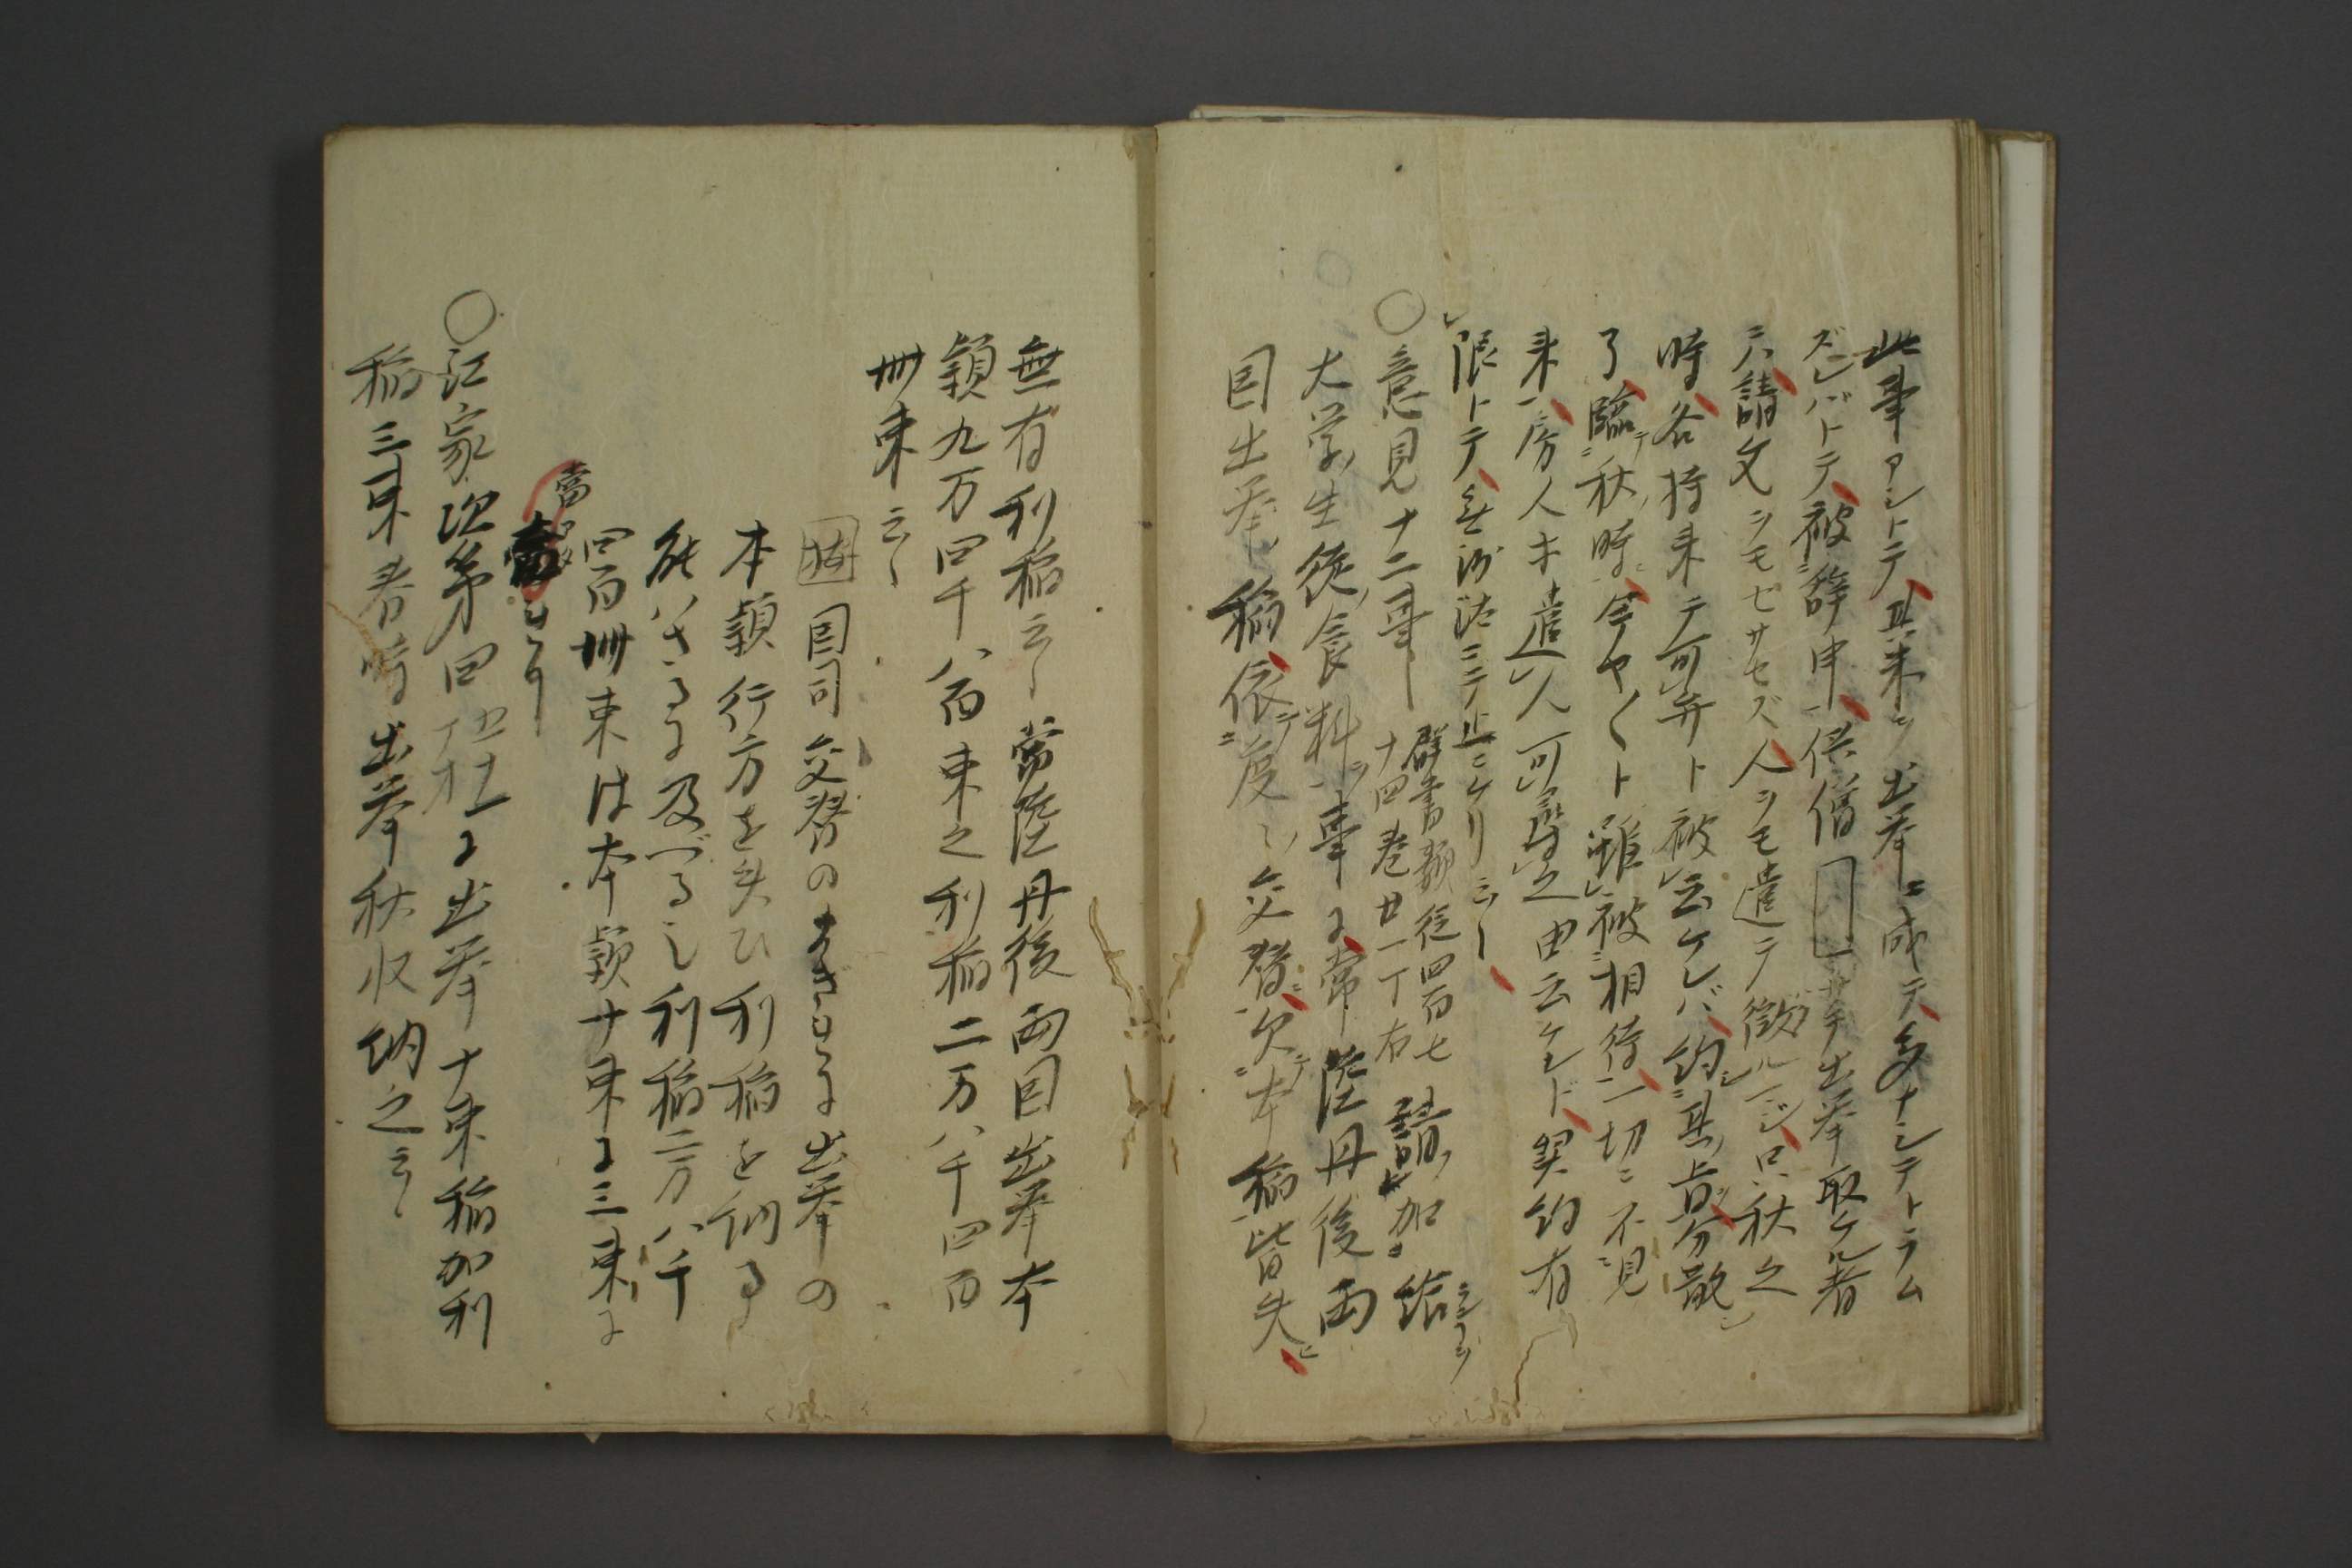 此事アシトテ其米ヲ出挙ニ成テ多ナシテトラム
ズレバトテ被辞申一供僧 出挙取ケル者
ニハ請文ヲモセサセズ人ヲモ遣テ徴ルマジ只秋之
時各持来テ可弁ト被云ケレバ約其旨分散シ
了臨テ秋ノ時ニ今ヤ〱ト雖被相待一切ニ不見
来一房人ヲ遣シ人可尋之由云ケレド契約有
限トテ無沙汰ニテ止ニケリ云〻
○意見十二事 群書類従四百七十四巻廿一丁右 請加給
大学生徒食料事に常陸丹後両
国出挙稲依度〻交替次本稲皆失
無有利稲云〻常陸丹後両国出挙本
穎九万四千八百束之利稲二万八千四百
卌束云〻
国司交替のまぎれに出挙の
本穎行方を失ひ利稲を納る
能はさるに及べるし利稲二万八千
四百卌束は本穎十束に三束に
當れり
○江家次第四 に出挙十束稲加利
稲三束春時出挙秋収納之云〻